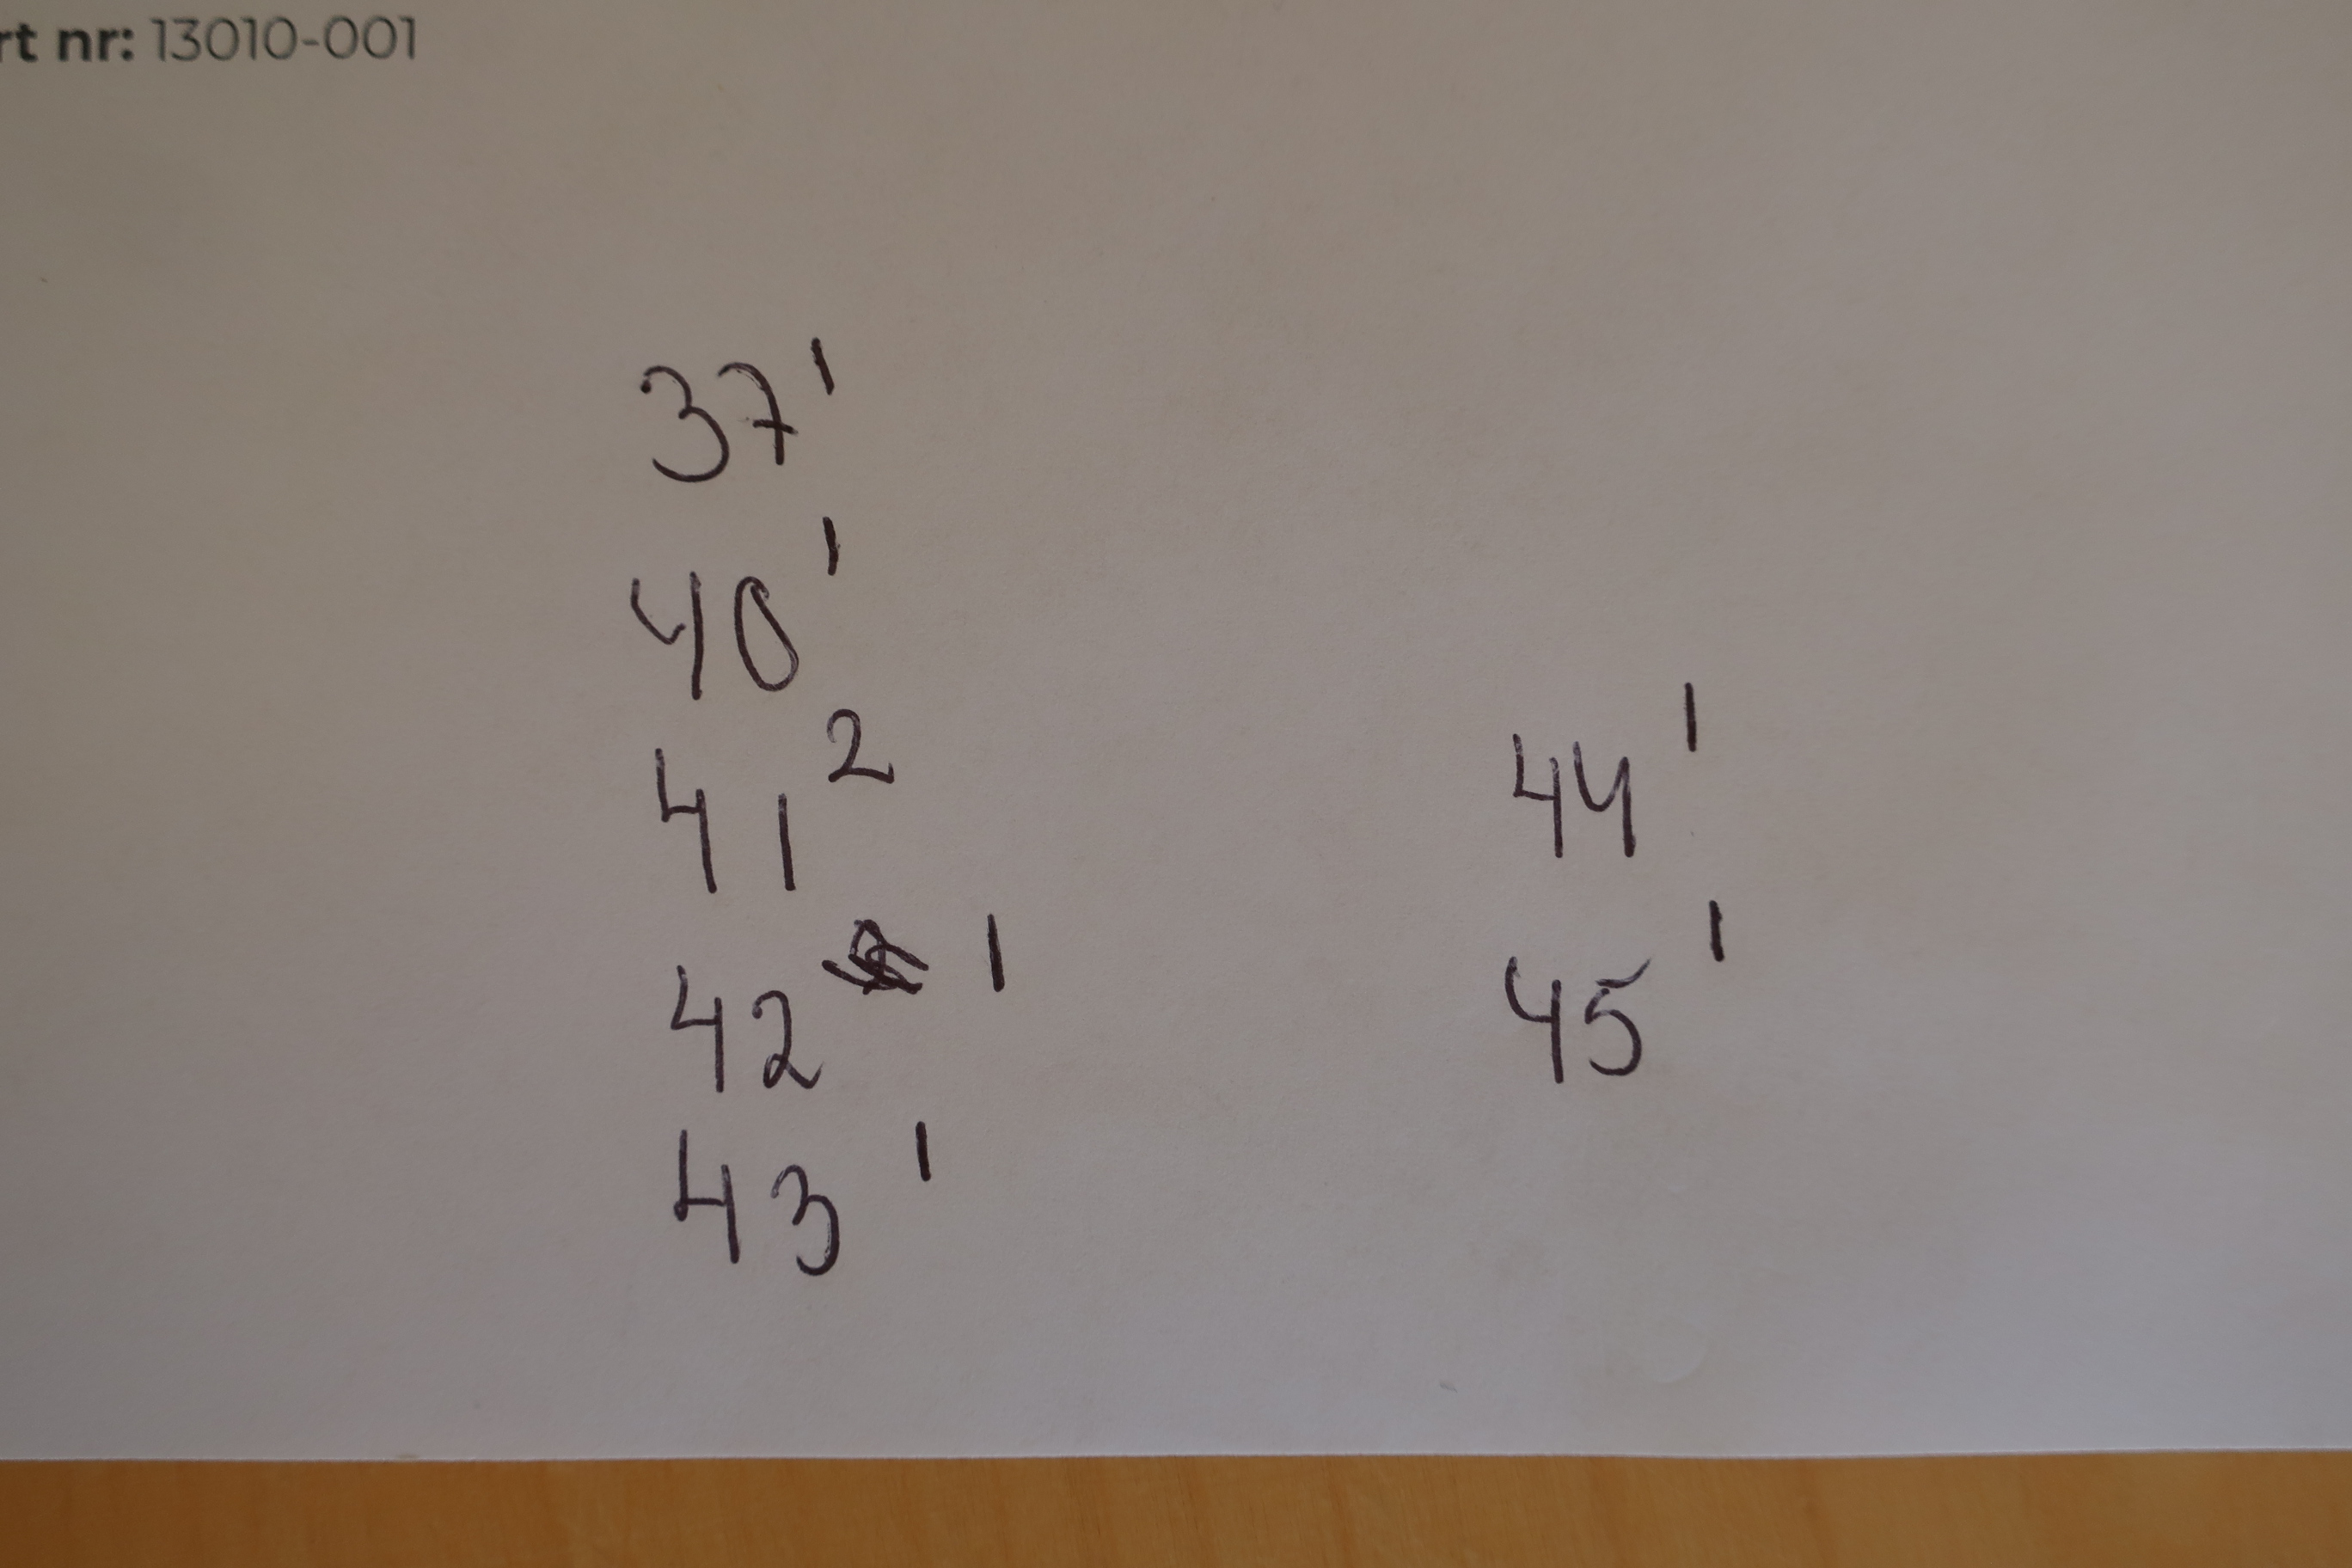 rt nr: 13010-001
37 1
40 1
41 2
42 1
43 1
44 1
45 1